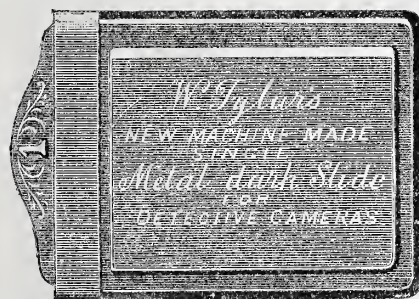 W. Tylar's
NEW MACHINE MADE
SINGLE
Metal dark Slide
FOR
DETECTIVE CAMERAS
1